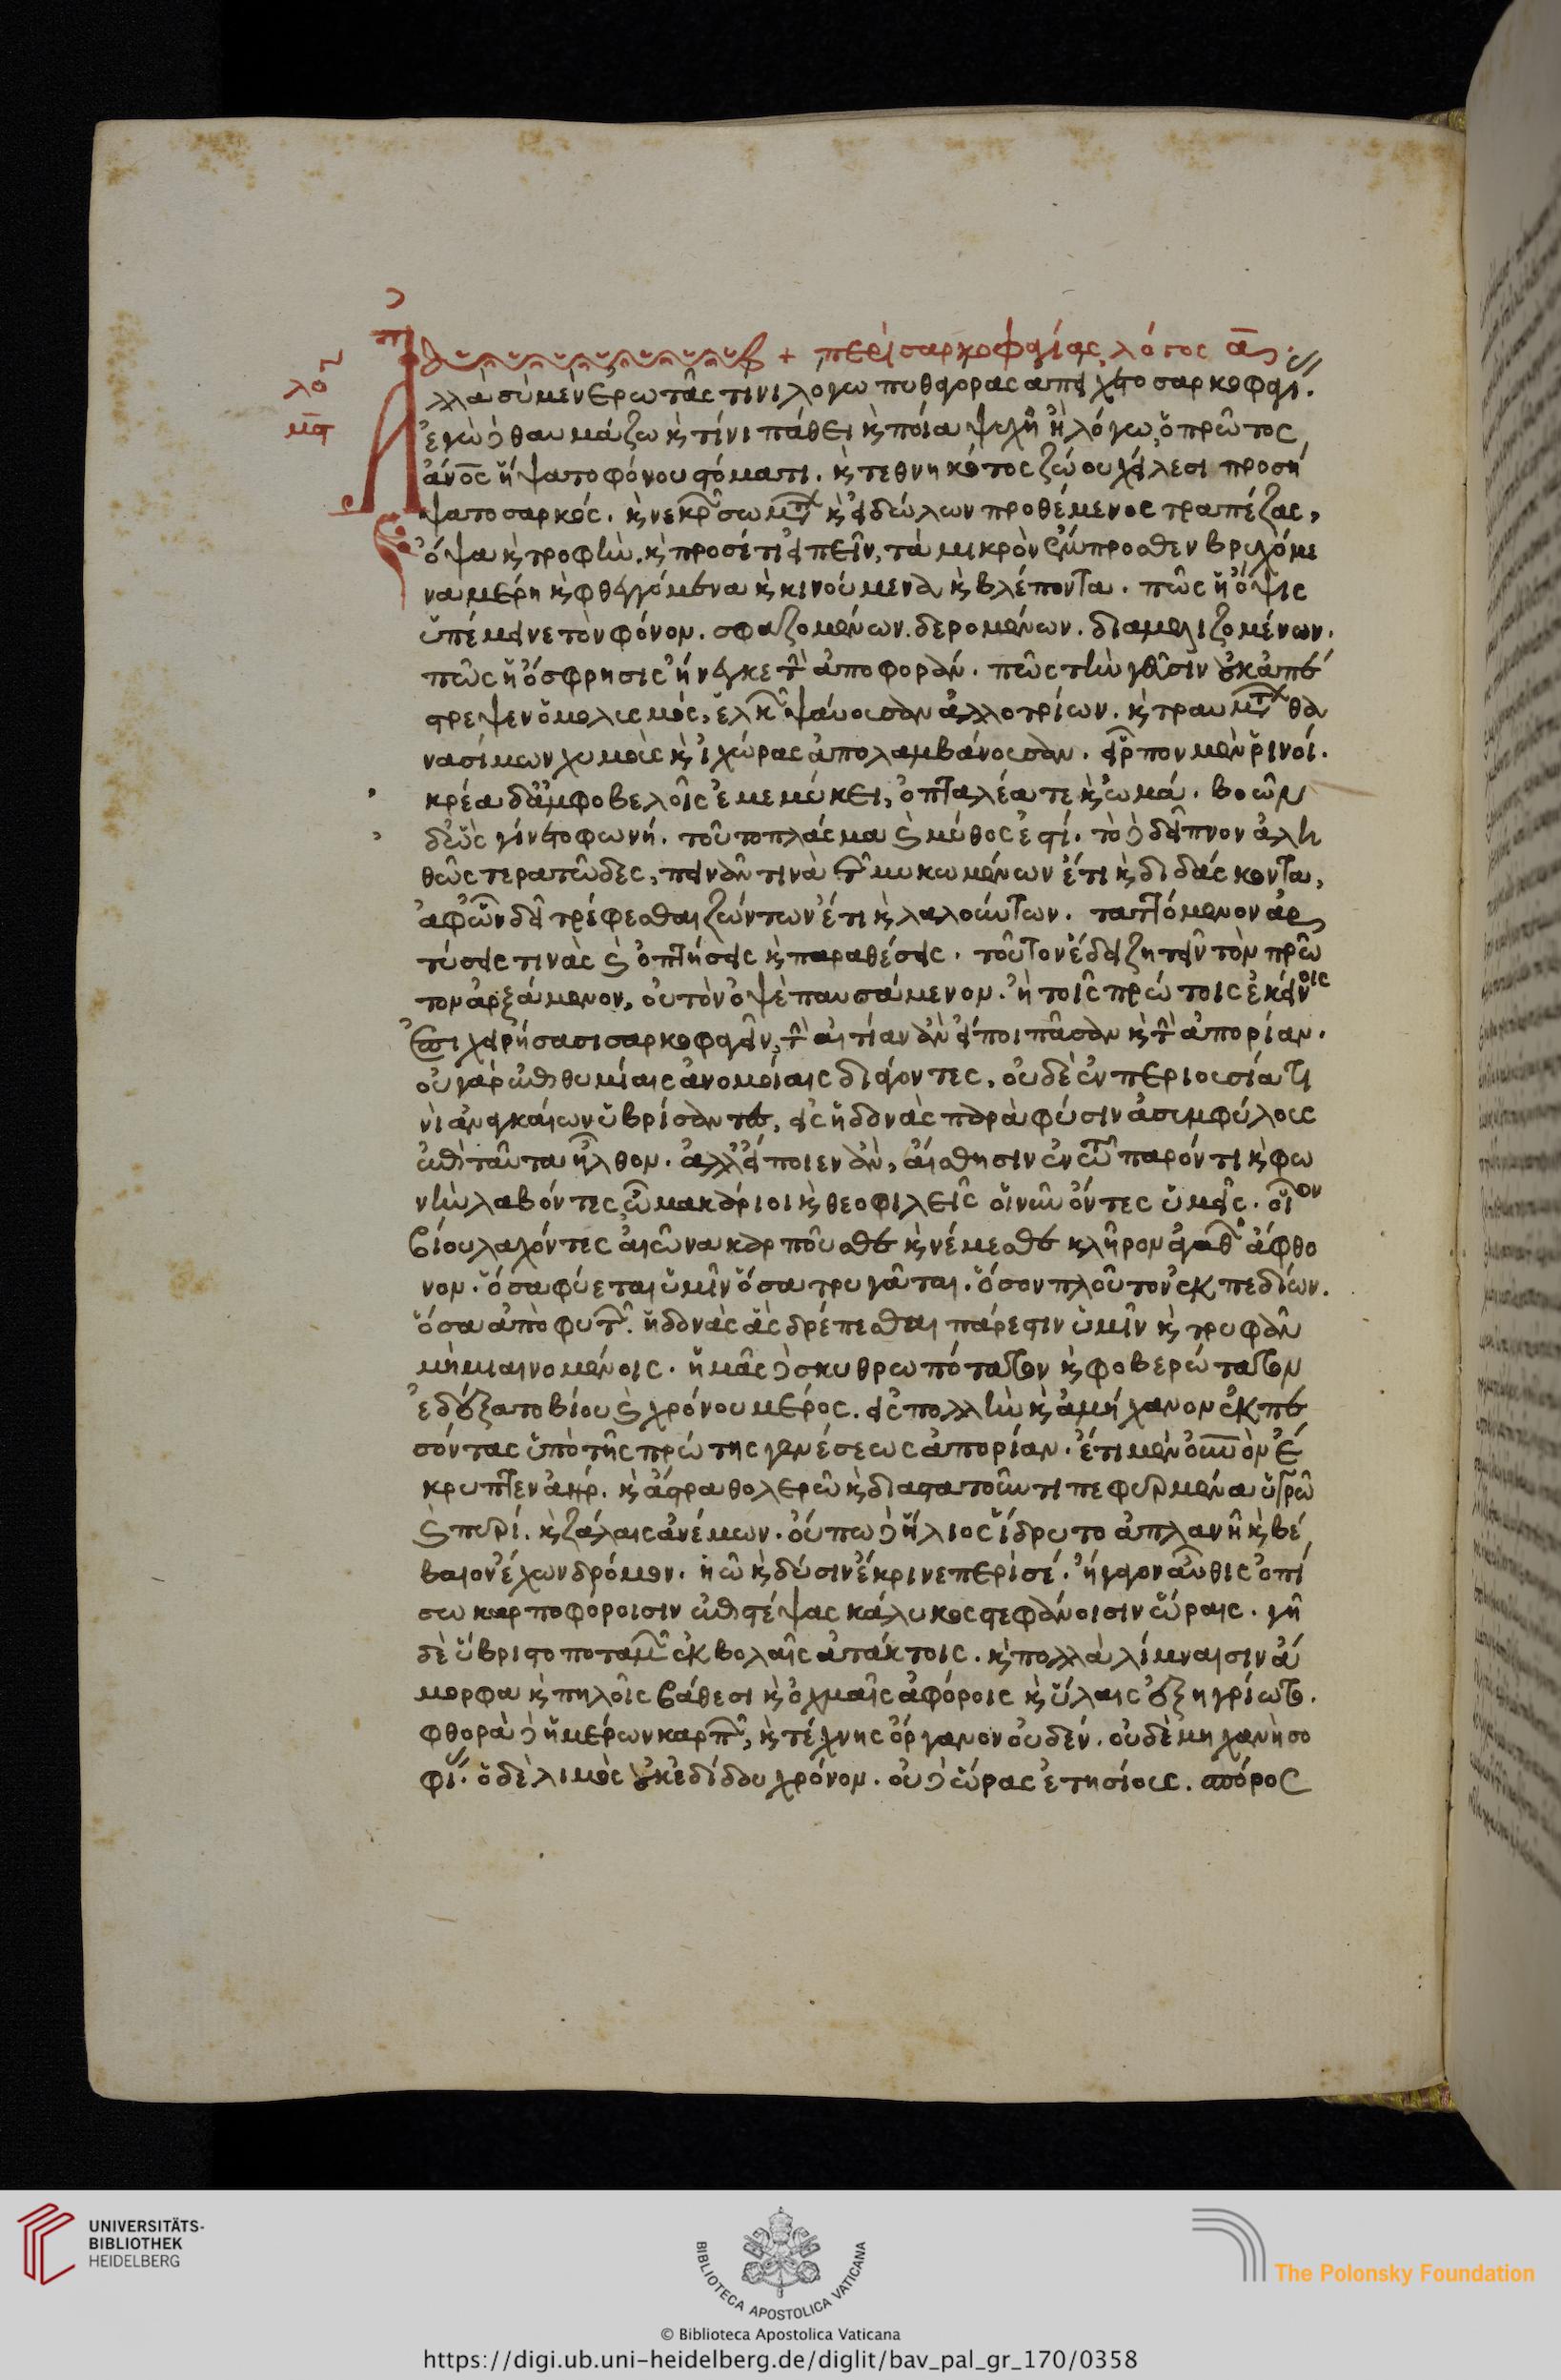 λόγ
μα
+ περὶ σαρκοφαγίας λόγος α̅
Ἀλλὰ σὺ μὲν ἐρωτᾶς τίνι λόγω πυθαγόρας ἀπείχετο σαρκοφαγί.
ἐγὼ δὲ θαυμάζω ϗ τίνι πάθει ϗ ποία ψυχῆ ἢ λόγω, ὁ πρῶτος
ἄν̅ο̅ς ἥψατο φόνου στόματι. ϗ τεθνηκότος ζώου χείλεσι προσή
ψατο σαρκός. ϗ νεκρῶν σωμάτων ϗ εἰδώλων προθέμενος τραπέζας,
ὄψα ϗ τροφὴν. ϗ προσέτι εἰπεῖν, τὰ μικρὸν ἔμπροσθεν βρυχόμε
να μέρη ϗ φθεγγόμενα ϗ κινούμενα ϗ βλέποντα. πῶς ἡ ὄψις
ὑπέμεινε τὸν φόνον. σφαζομένων. δερομένων. διαμελιζομένων.
πῶς ἡ ὄσφρησις ἤνεγκε τὴν ἀποφοράν. πῶς τὴν γεῦσιν οὐκ ἀπέ
στρεψεν ὁ μολυσμὸς, ἑλκῶν ψαύουσαν ἀλλοτρίων. ϗ τραυμάτων θα
νασίμων χυμοὺς ϗ ἰχώρας ἀπολαμβάνουσαν. εἷρπον μὲν ῥινοί.
κρέα δ' ἀμφ' ὀβελοῖς ἐμεμύκει, ὀπταλέα τε ϗ ὠμά. βοῶν
δ' ὣς γίνετο φωνή. τοῦτο πλάσμα ϗ μῦθός ἐστί. τὸ δὲ δεῖπνον ἀλη
θῶς τερατῶδες, πεινᾶν τινὰ τῶν μυκωμένων ἔτι ϗ διδάσκοντα,
ἀφ' ὧν δεῖ τρέφεσθαι ζώντων ἔτι ϗ λαλούντων. ταττόμενον ἀρ
τύσεις τινὰς ϗ ὀπτήσεις ϗ παραθέσεις. τοῦτον ἔδει ζητεῖν τὸν πρῶ
τον ἀρξάμενον, οὐ τὸν ὀψὲ παυσάμενον. ἢ τοῖς πρώτοις ἐκείνοις
ἐπιχειρήσασι σαρκοφαγεῖν, τὴν αἰτίαν ἂν εἴποι πᾶσαν ϗ τὴν ἀπορίαν.
οὐ γὰρ ἐπιθυμίαις ἀνομοίαις διάγοντες, οὐδὲ ἐν περιουσία τι
νὶ ἀναγκαίων ὑβρίσαντες, εἰς ἡδονὰς παρὰ φύσιν ἀσυμφύλους
ἐπὶ ταῦτα ἦλθον. ἀλλ' εἴποιεν ἂν, αἴσθησιν ἐν τῶ παρόντι ϗ φω
νὴν λαβόντες, ὦ μακάριοι ϗ θεοφιλεῖς οἱ νῦν ὄντες ὑμεῖς. οἷον
βίου λαχόντες αἰῶνα καρποῦσθε ϗ νέμεσθε κλῆρον ἀγαθῶν ἄφθο
νον. ὅσα φύεται ὑμῖν ὅσα τρυγᾶται. ὅσον πλοῦτον ἐκ πεδίων.
ὅσα ἀπὸ φυτῶν. ἡδονὰς ἃς δρέπεσθαι πάρεστιν ὑμῖν ϗ τρυφᾶν
μὴ μιαινομένοις. ἡμᾶς δὲ σκυθρωπότατον ϗ φοβερώτατον
ἐδέξατο βίου ϗ χρόνου μέρος. εἰς πολλὴν ϗ ἀμήχανον ἐκπε
σόντας ὑπὸ τῆς πρώτης γενέσεως ἀπορίαν. ἔτι μὲν οὐρανὸν ἔ
κρυπτεν ἀὴρ. ϗ ἄστρα θολερῶ ϗ διαστατοῦντι πεφυρμένα ὑγρῶ
ϗ πυρί. ϗ ζάλαις ἀνέμων. οὔπω δὲ ἥλιος ἵδρυτο ἀπλανῆ ϗ βέ
βαιον ἔχων δρόμον. ἠῶ ϗ δύσιν ἔκρινε περὶ σέ. ἤγαγον αὖθις ὀπί
σω καρποφόροισιν ἐπιστέψας κάλυκος στεφάνοισιν ὥραις. γῆ
δὲ ὕβριστο ποταμῶν ἐκβολαῖς ἀτάκτοις. ϗ πολλὰ λίμναισιν ἄ
μορφα ϗ πηλοῖς βάθεσι ϗ λόχμαις ἀφόροις ϗ ὕλαις ἐξηγρίωτο.
φθορὰ δὲ ἡμέρων καρπῶν, ϗ τέχνης ὄργανον οὐδέν. οὐδὲ μηχανὴ σο
φί. ὁ δὲ λιμὸς οὐκ ἐδίδου χρόνον. οὐδὲ ὥρας ἐτησίους. σπόρος
UNIVERSITÄTS-
BIBLIOTHEK
HEIDELBERG
BIBLIOTECA APOSTOLICA VATICANA
The Polonsky Foundation
© Biblioteca Apostolica Vaticana
https://digi.ub.uni-heidelberg.de/diglit/bav_pal_gr_170/0358